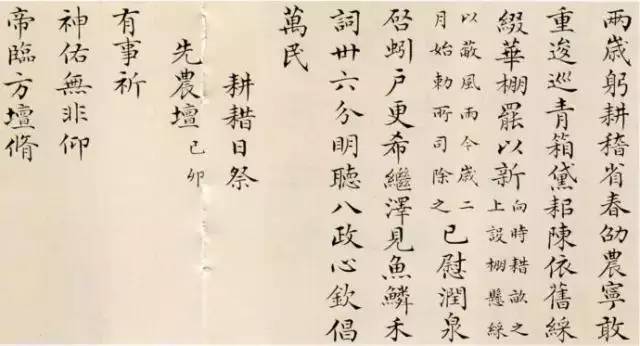 兩歲躬耕稽省春劭農寧敢
重逡巡青箱黛耜陳依舊綵
綴華棚罷以新向時耤畝之上設棚懸綵
以蔽風雨今歲二月始勅所司除之已慰潤泉
启蚓户更希繼澤見魚鱗禾
詞卅六分明聽八政心欽倡
萬民
耕耤日祭
先農壇己卯
有事祈
神佑無非仰
帝臨方壇脩